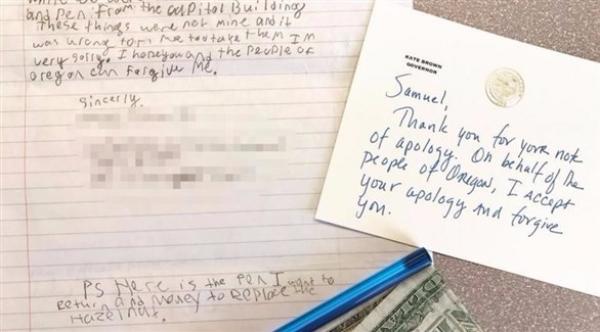 and pen from the capitol Building
These things were not mine and it
was wrong for me too take them I'm
very sorry. I hope you and the people of
oregon can forgive Me.
Sincerly,
PS Here is the pen I want to
return and Money to replace the
Hazelnut.
KATE BROWN
GOVERNOR
Samuel,
Thank you for your note
of apology. On behalf of the
people of Oregon, I accept
your apology and forgive
you.